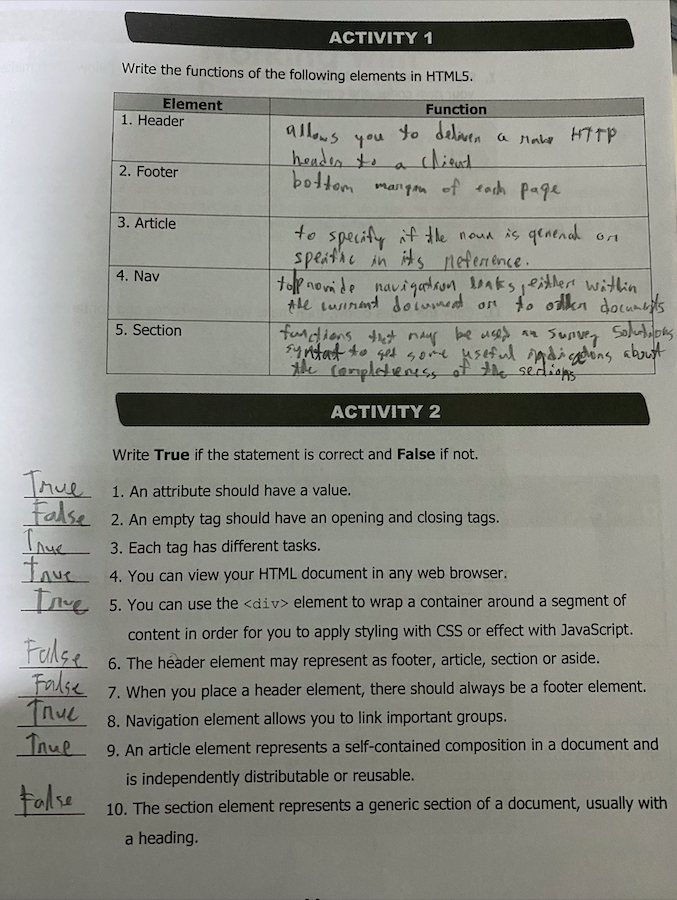 ACTIVITY 1
Write the functions of the following elements in HTML5.
Element Function
1. Header allows you to deliver a HTTP
header to a client
2. Footer bottom margin of each page
3. Article to specify if the noun is general or
in its reference.
4. Nav to provide navigation links, either within
the current document or to other documents
5. Section functions that may be used in Survey Solutions
syntax to get some useful indications about
the completeness of the sections
ACTIVITY 2
Write True if the statement is correct and False if not.
True 1. An attribute should have a value.
False 2. An empty tag should have an opening and closing tags.
True 3. Each tag has different tasks.
True 4. You can view your HTML document in any web browser.
True 5. You can use the <div> element to wrap a container around a segment of
content in order for you to apply styling with CSS or effect with JavaScript.
False 6. The header element may represent as footer, article, section or aside.
False 7. When you place a header element, there should always be a footer element.
True 8. Navigation element allows you to link important groups.
True 9. An article element represents a self-contained composition in a document and
is independently distributable or reusable.
False 10. The section element represents a generic section of a document, usually with
a heading.